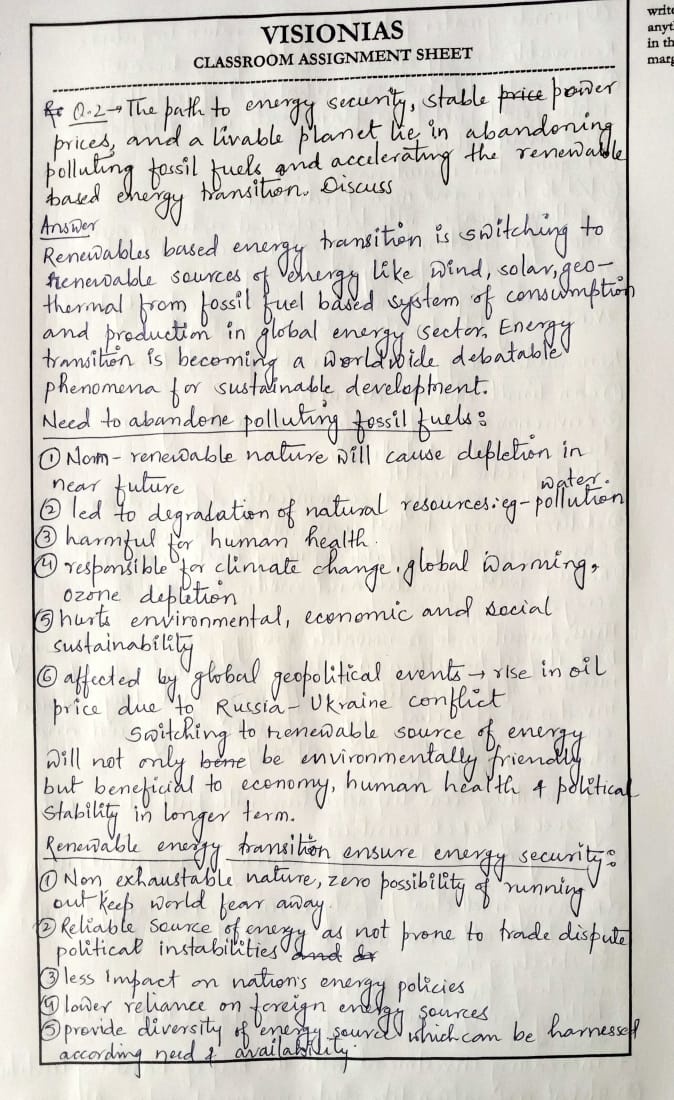 VISIONIAS
CLASSROOM ASSIGNMENT SHEET
write
anyt
in th
marg
Q.2→ The path to energy security, stable price power
prices, and a livable planet lie in abandoning
polluting fossil fuels and accelerating the renewable
based energy transition. Discuss
Answer
Renewables based energy transition is switching to
renewable sources of energy like wind, solar, geo-
thermal from fossil fuel based system of consumption
and production in global energy sector. Energy
transition is becoming a worldwide debatable
phenomena for sustainable development.
Need to abandone polluting fossil fuels:
① Non-renewable nature will cause depletion in
near future
② led to degradation of natural resources: eg- water pollution
③ harmful for human health.
④ responsible for climate change, global warming,
ozone depletion
⑤ hurts environmental, economic and social
sustainability
⑥ affected by global geopolitical events → rise in oil
price due to Russia-Ukraine conflict
Switching to renewable source of energy
will not only bene be environmentally friendly
but beneficial to economy, human health & political
stability in longer term.
Renewable energy transition ensure energy security:
① Non exhaustable nature, zero possibility of running
out keep world fear away.
② Reliable source of energy as not prone to trade dispute
political instabilities and
③ less impact on nation's energy policies
④ lower reliance on foreign energy sources
⑤ provide diversity of energy source which can be harnessed
according need & availability.